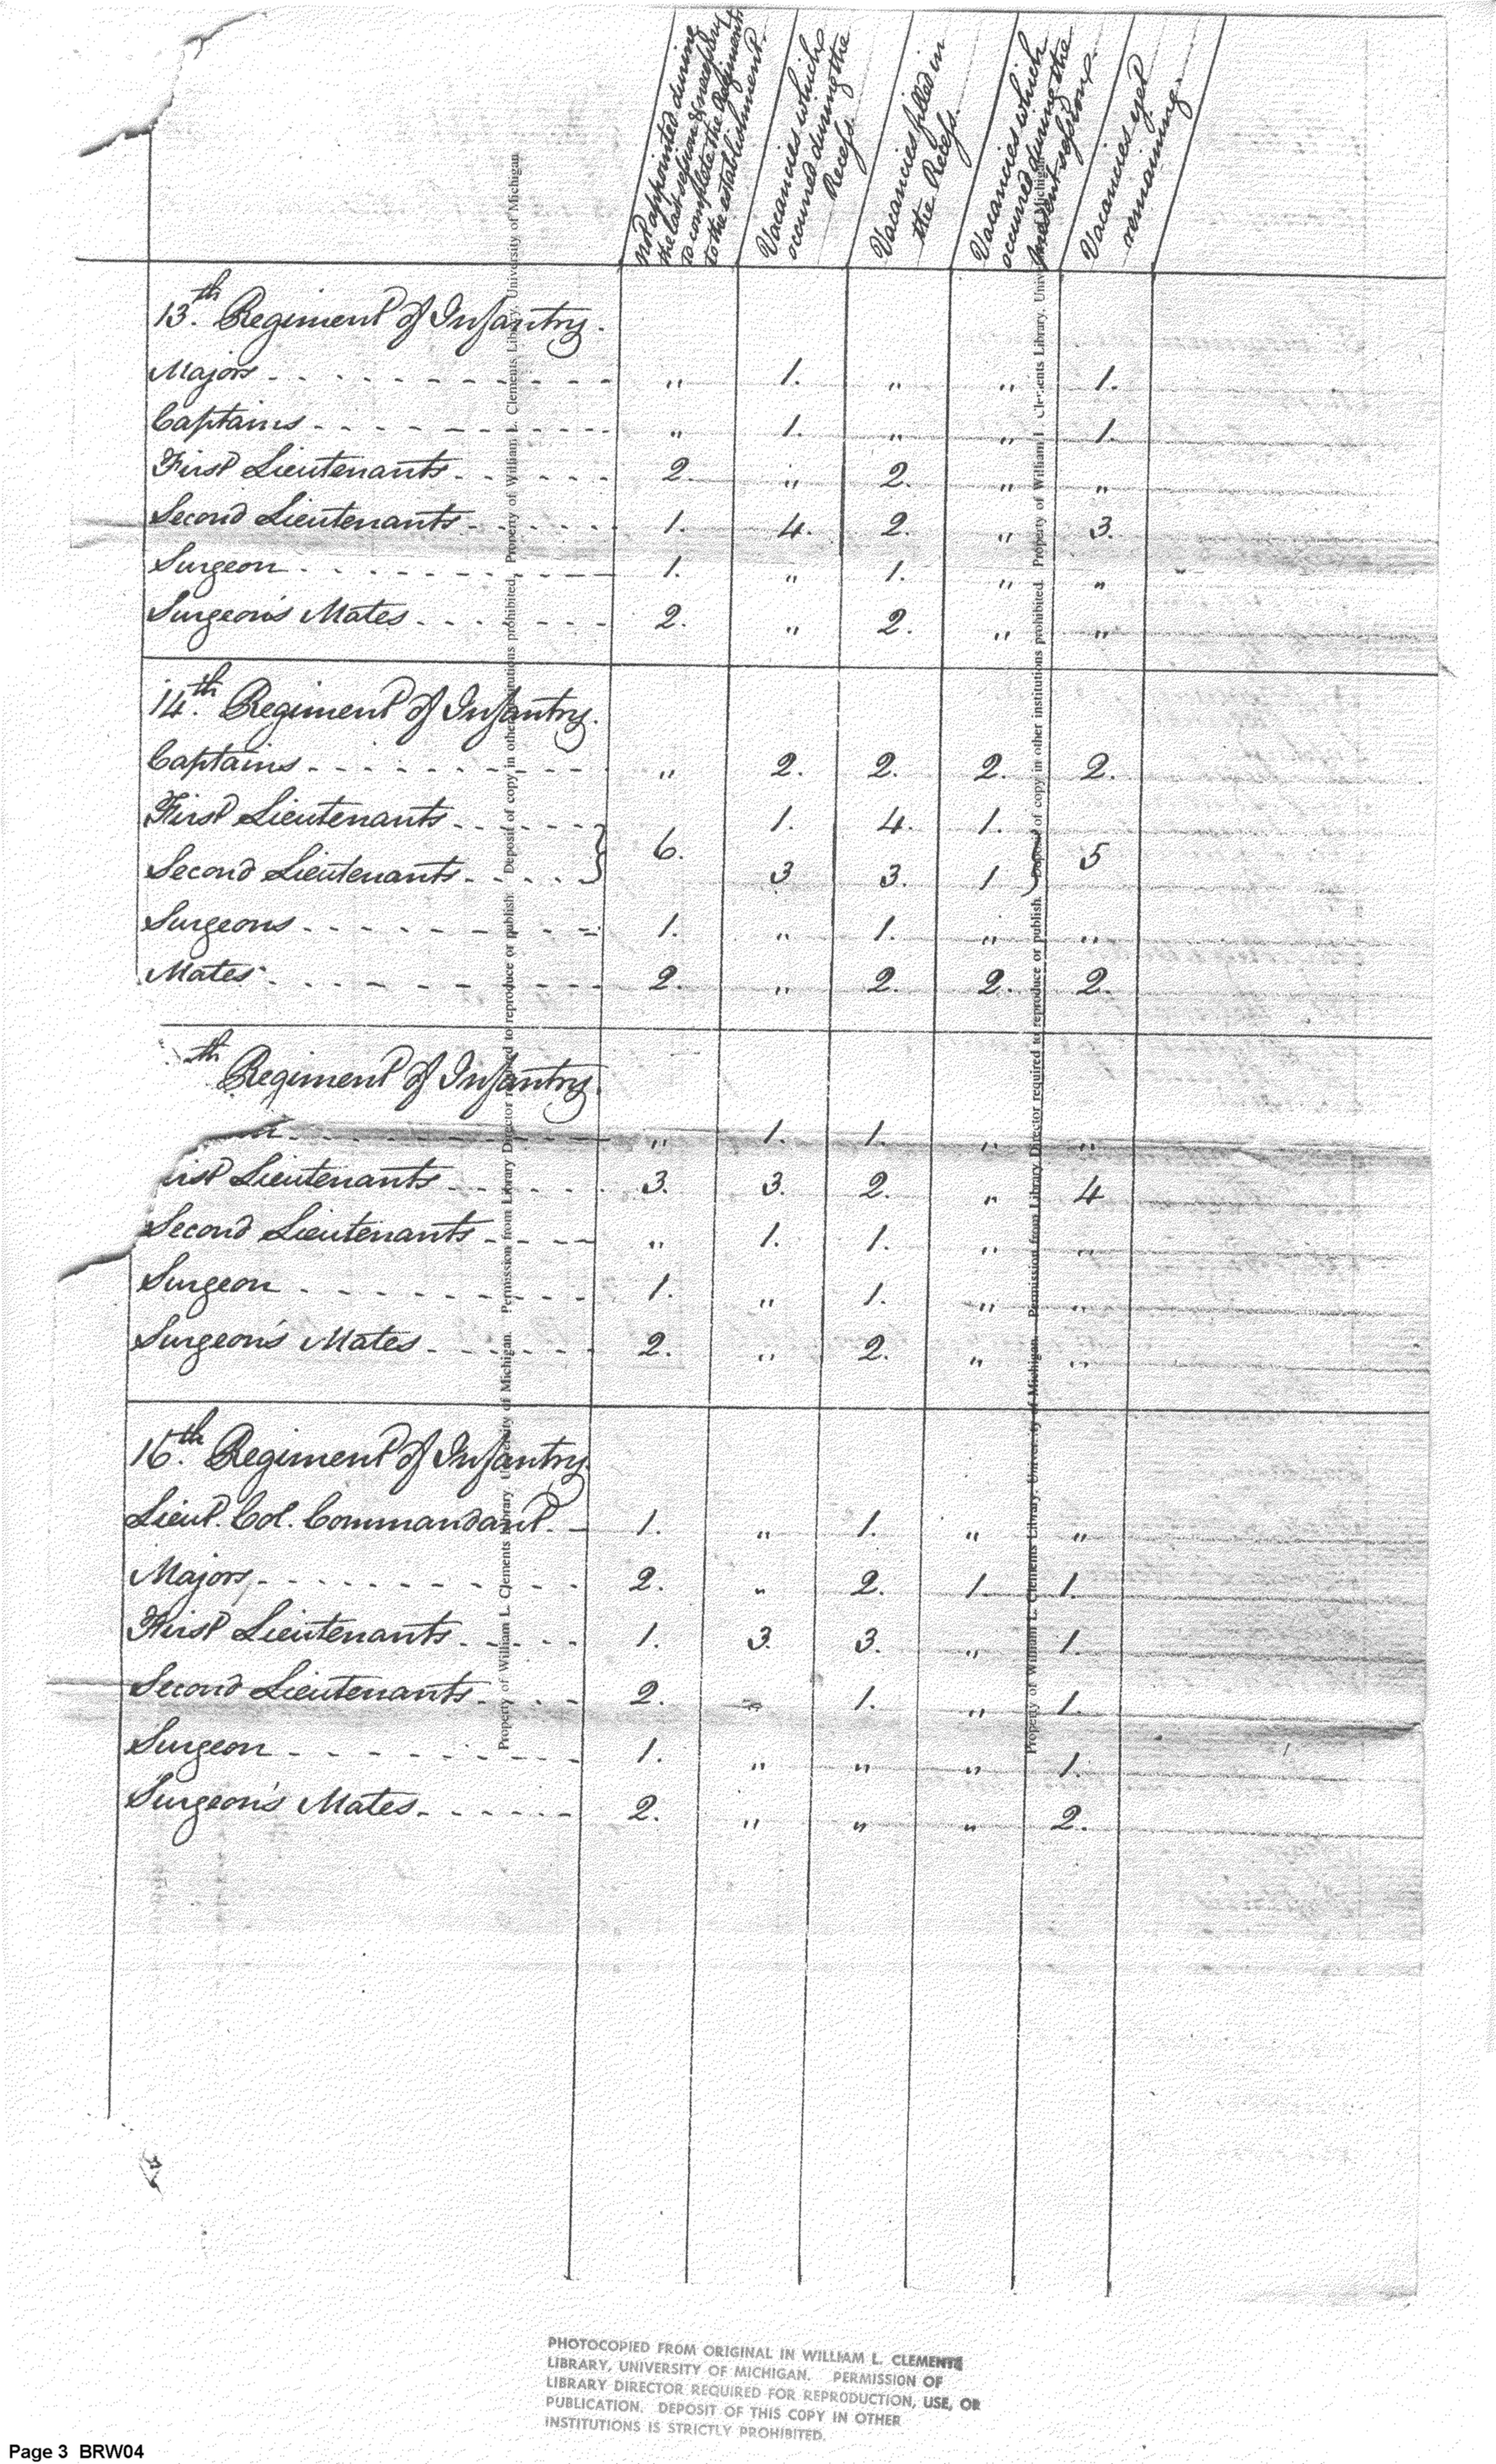 Not appointed during
the last session & necessary
to complete the Regiments
to the establishment.
Vacancies which
occurred during the
Recess.
Vacancies filled in
the Recess.
Vacancies which
occurred during the
present session.
Vacancies yet
remaining.
13.th Regiment of Infantry.
Majors - - - - - - - " 1. " " 1.
Captains - - - - - - - " 1. " " 1.
First Lieutenants - - - - 2. " 2. " "
Second Lieutenants - - - - 1. 4. 2. " 3.
Surgeon - - - - - - - 1. " 1. " "
Surgeon's Mates - - - - - 2. " 2. " "
14.th Regiment of Infantry.
Captains - - - - - - - " 2. 2. 2. 2.
First Lieutenants - - - - } 6. 1. 4. 1. } 5
Second Lieutenants - - - - 3 3. 1
Surgeons - - - - - - - 1. " 1. " "
Mates - - - - - - - 2. " 2. 2. 2.
th Regiment of Infantry.
- - - - - - - " 1. 1. " "
irst Lieutenants - - - - 3. 3. 2. " 4
Second Lieutenants - - - - " 1. 1. " "
Surgeon - - - - - - - 1. " 1. " "
Surgeon's Mates - - - - - 2. " 2. " "
16.th Regiment of Infantry
Lieut. Col. Commandant. - 1. " 1. " "
Majors, - - - - - - - 2. " 2. 1. 1.
First Lieutenants - - - - 1. 3. 3. " 1.
Second Lieutenants - - - - 2. 1. " 1.
Surgeon - - - - - - - 1. " " " 1.
Surgeon's Mates - - - - - 2. " " " 2.
Property of William L. Clements Library, University of Michigan. Permission from Library Director required to reproduce or publish. Deposit of copy in other institutions prohibited. Property of William L. Clements Library, University of Michigan
Property of William L. Clements Library, University of Michigan. Permission from Library Director required to reproduce or publish. Deposit of copy in other institutions prohibited. Property of William L. Clements Library, University of Michigan
PHOTOCOPIED FROM ORIGINAL IN WILLIAM L. CLEMENTS
LIBRARY, UNIVERSITY OF MICHIGAN. PERMISSION OF
LIBRARY DIRECTOR REQUIRED FOR REPRODUCTION, USE, OR
PUBLICATION. DEPOSIT OF THIS COPY IN OTHER
INSTITUTIONS IS STRICTLY PROHIBITED.
Page 3 BRW04